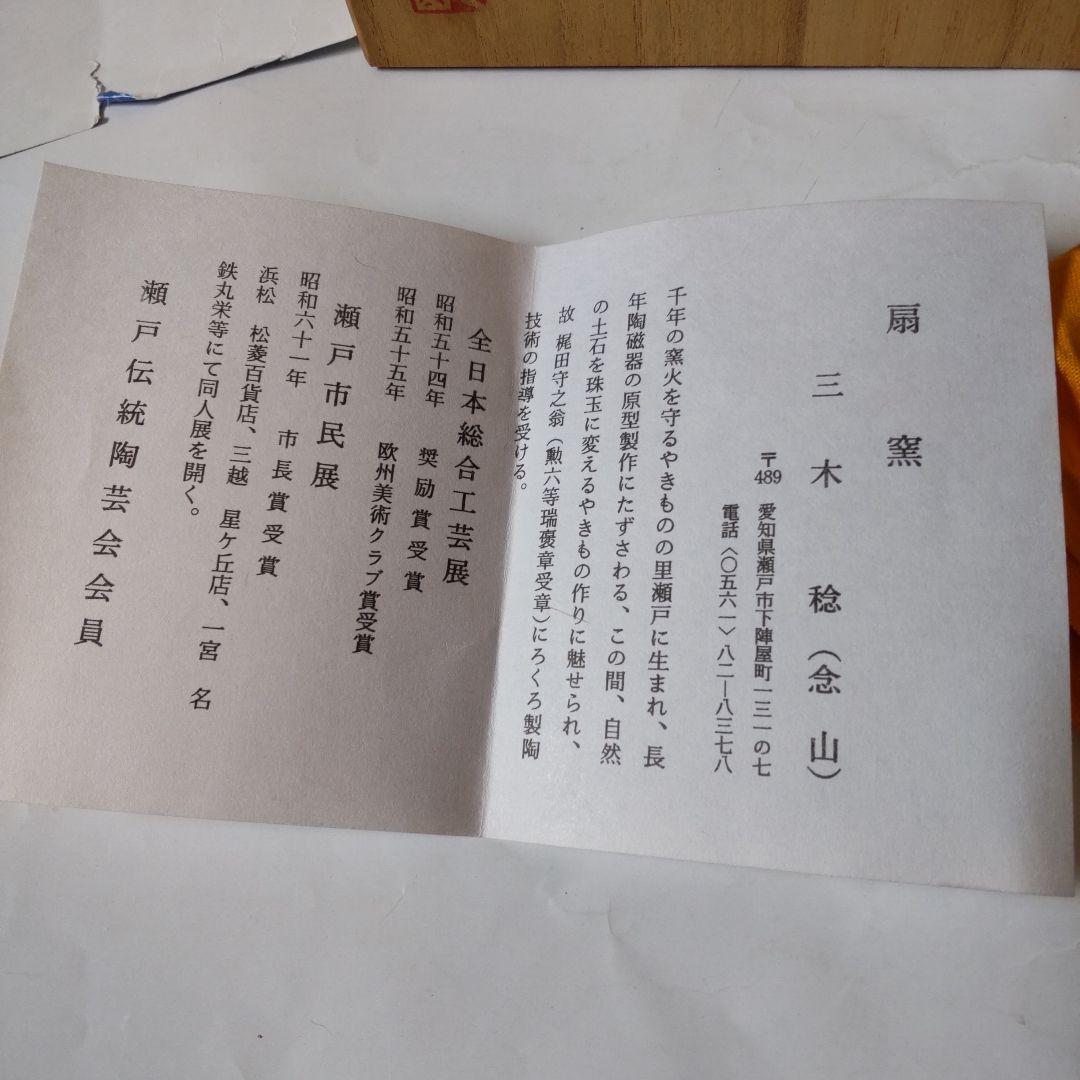 扇窯
三木稔(念山)
〒489 愛知県瀬戸市下陣屋町一三一の七
電話〈〇五六一〉八二―八三七八
千年の窯火を守るやきものの里瀬戸に生まれ、長
年陶磁器の原型製作にたずさわる、この間、自然
の土石を珠玉に変えるやきもの作りに魅せられ、
故 梶田守之翁(勲六等瑞褒章受章)にろくろ製陶
技術の指導を受ける。
全日本総合工芸展
昭和五十四年 奨励賞受賞
昭和五十五年 欧州美術クラブ賞受賞
瀬戸市民展
昭和六十一年 市長賞受賞
浜松 松菱百貨店、三越 星ヶ丘店、一宮 名
鉄丸栄等にて同人展を開く。
瀬戸伝統陶芸会会員